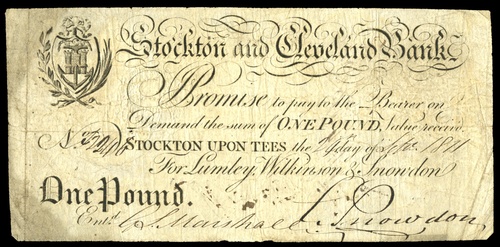 Stockton and Cleveland Bank.
I Promise to pay to the Bearer on
Demand the sum of ONE POUND, Value receiv'd
STOCKTON UPON TEES the day of 1811
For Lumley, Wilkinson & Snowdon
One Pound.
Ent.d Marshall Snowdon